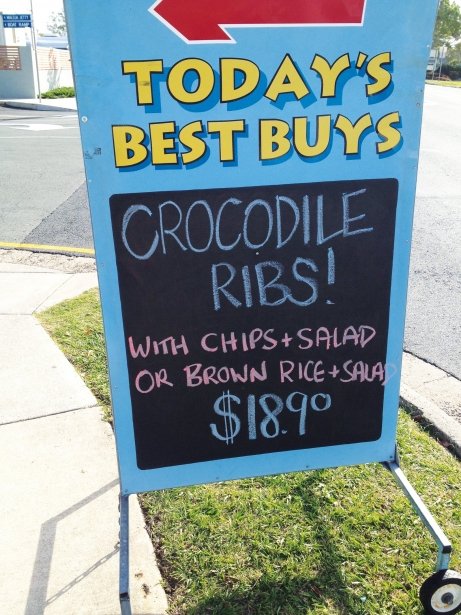 TODAY'S
BEST BUYS
CROCODILE
RIBS!
WITH CHIPS + SALAD
OR BROWN RICE + SALAD
$18.90